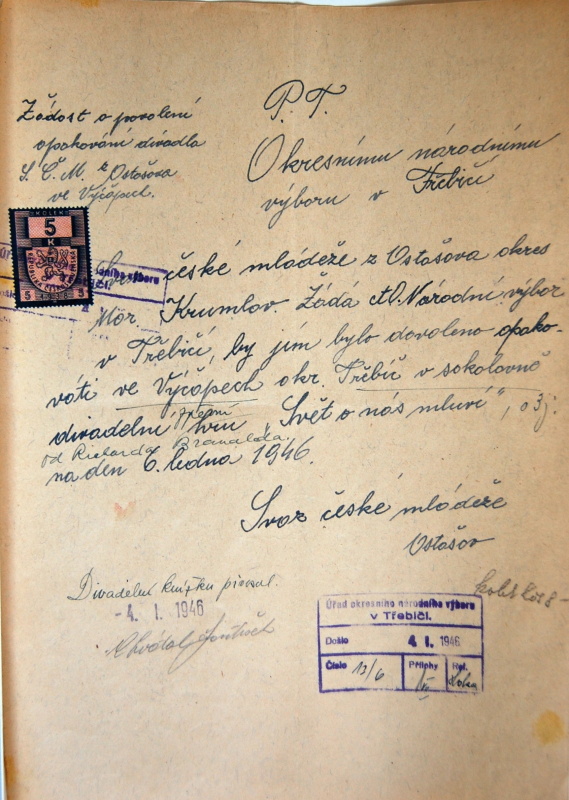 Žádost o povolení
opakování divadla
S. Č. M. z Ostašova
ve Výčapech.
P. T.
Okresnímu národnímu
výboru v Třebíči
KOLEK
5
K
5 5
české mládeže z Ostašova okres
Mor. Krumlov. Žádá Národní výbor
v Třebíči, by jim bylo dovoleno opako-
vati ve Výčapech okr. Třebíč v sokolovně
divadelní hru, Svět o nás mluví", o 3 j.
od Richarda Branalda.
na den 6. ledna 1946.
Svaz české mládeže
Ostašov
Divadelní knížku
- 4. I. 1946
Úřad okresního národního výboru
v Třebíči.
Došlo 4. I. 1946
Číslo 13/6 Přílohy Ref.